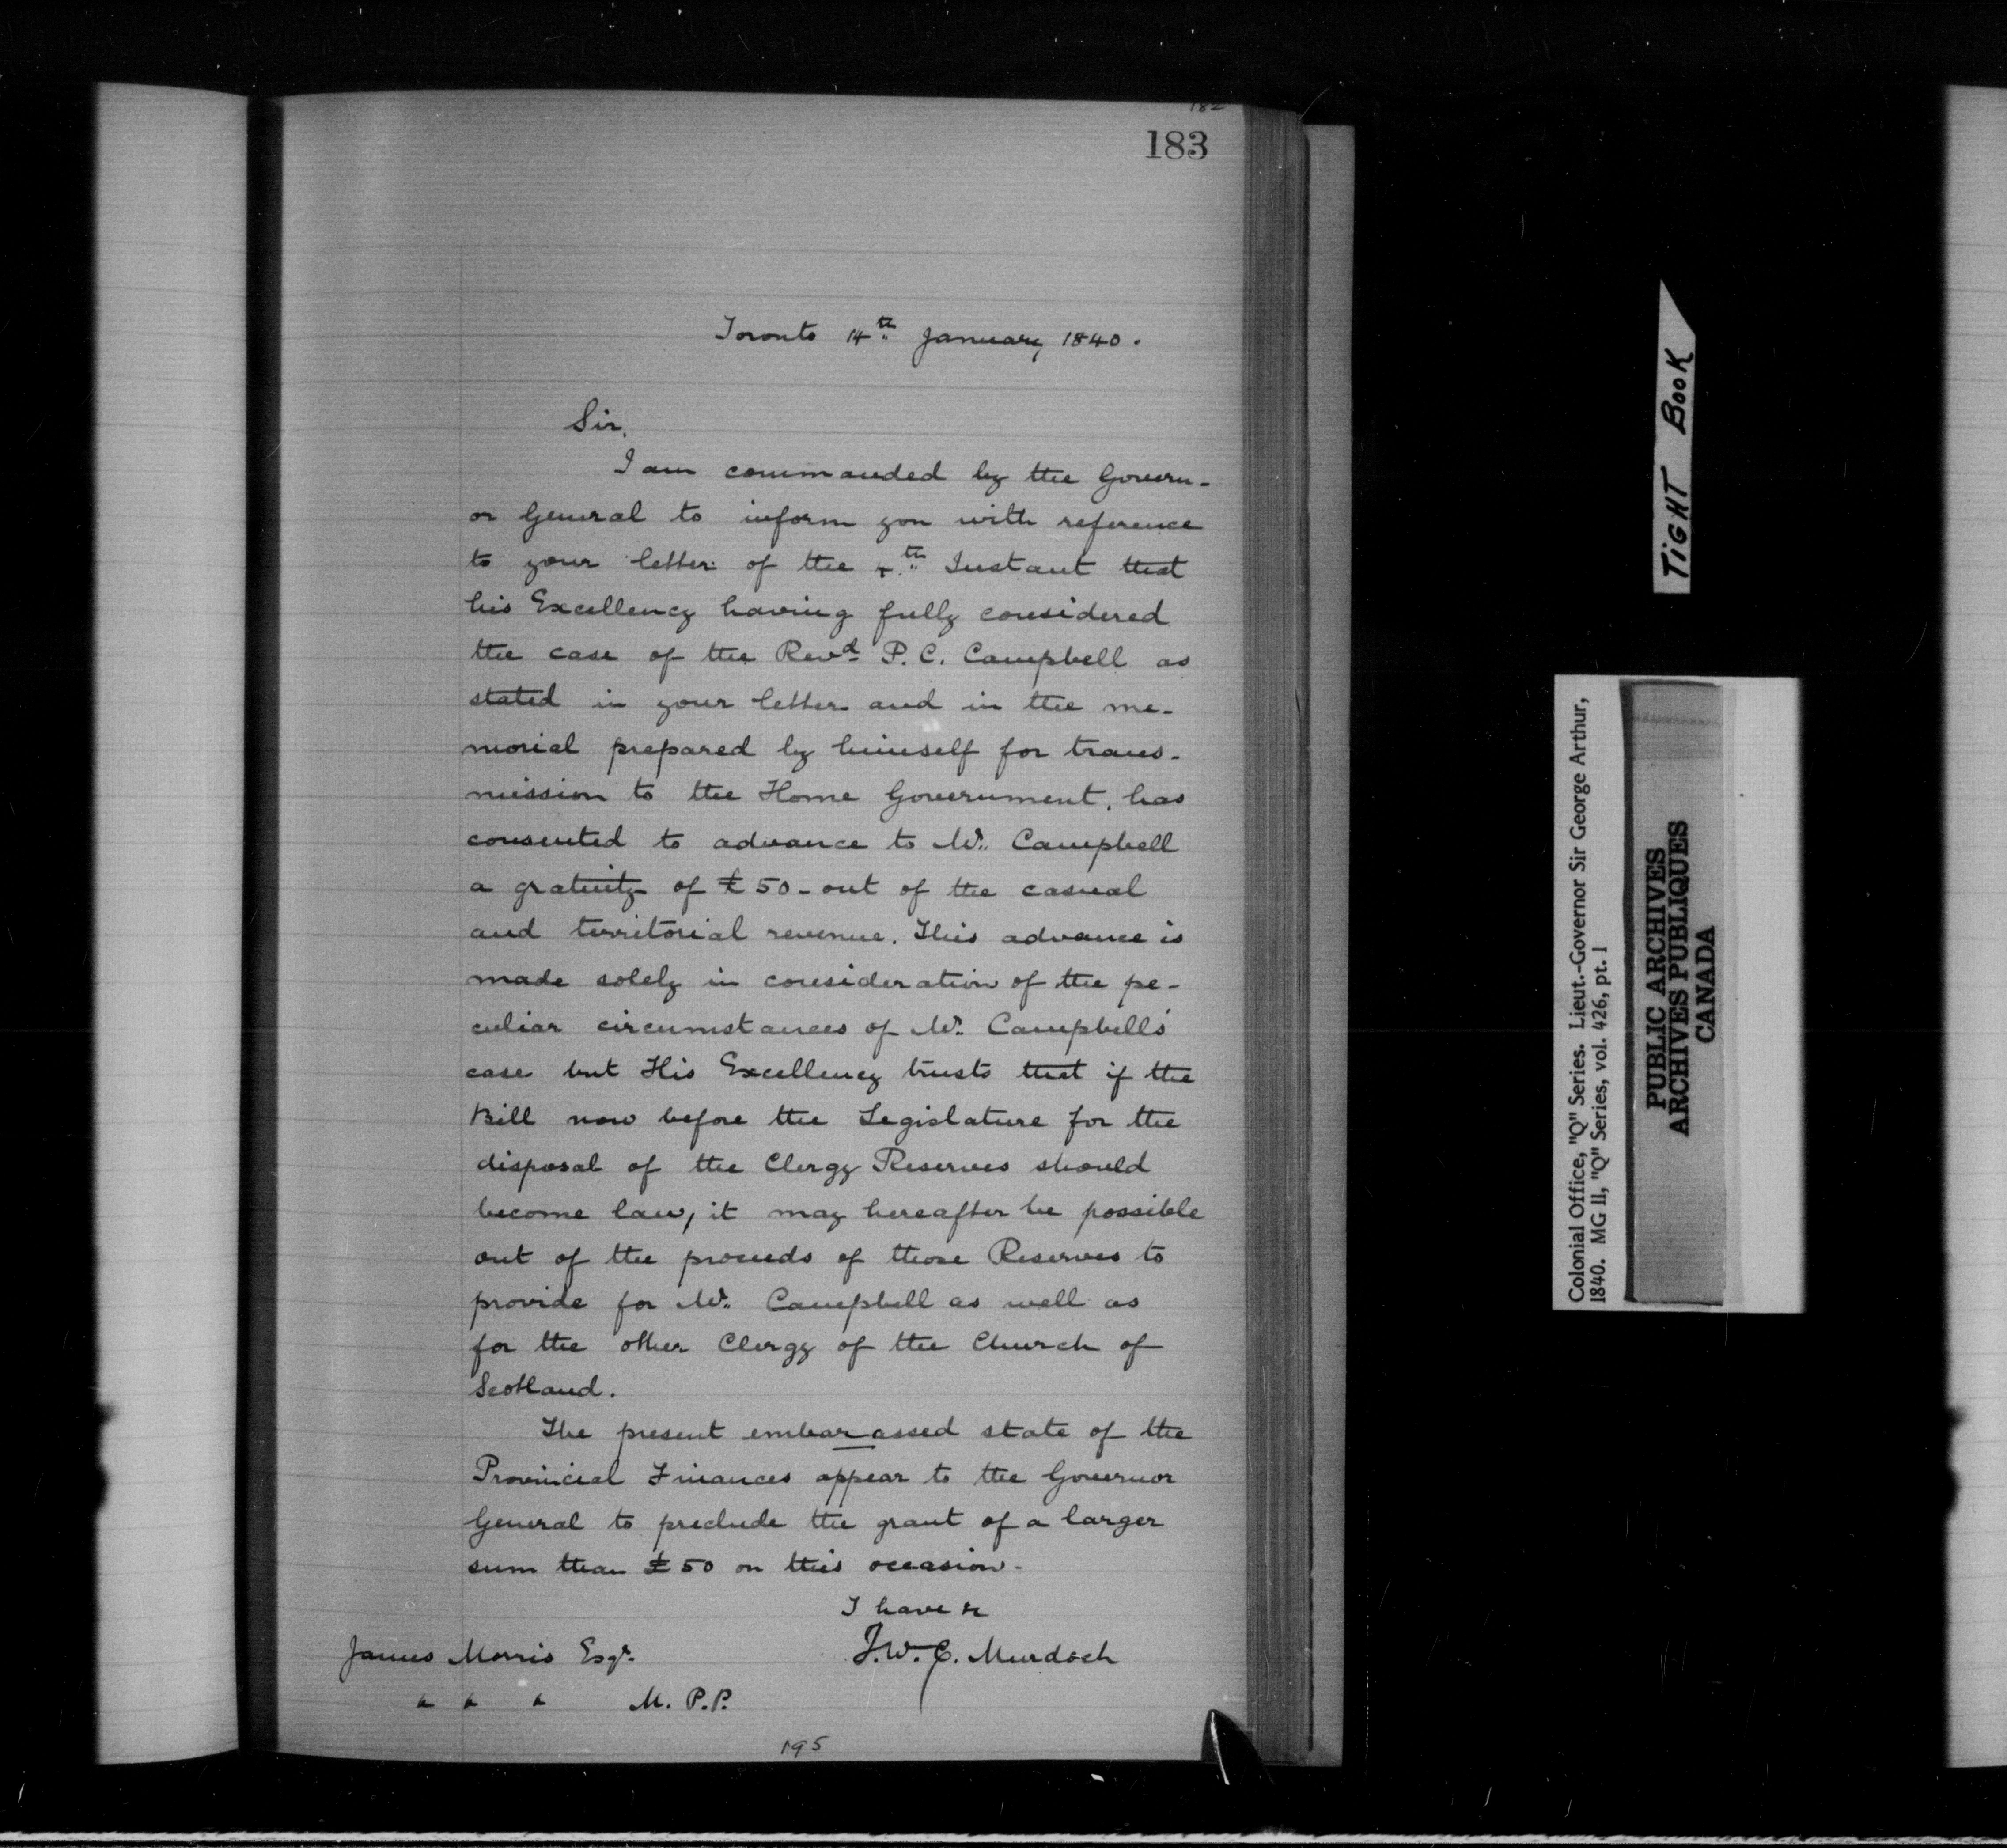 182
183
Toronto 14th January 1840.
Sir,
I am commanded by the Govern-
or General to inform you with reference
to your letter of the 4th Instant that
his Excellency having fully considered
the case of the Revd P. C. Campbell as
stated in your letter and in the me-
morial prepared by himself for trans-
mission to the Home Government, has
consented to advance to Mr. Campbell
a gratuity of £50 - out of the casual
and territorial revenue. This advance is
made solely in consideration of the pe-
culiar circumstances of Mr. Campbell's
case but His Excellency trusts that if the
Bill now before the Legislature for the
disposal of the Clergy Reserves should
become law, it may hereafter be possible
out of the proceeds of those Reserves to
provide for Mr. Campbell as well as
for the other Clergy of the Church of
Scotland.
The present embarassed state of the
Provincial Finances appear to the Governor
General to preclude the grant of a larger
sum than £50 on this occasion.
I have &c
James Morris Esqr. J.W.C. Murdoch
" " " M.P.P.
195
TIGHT BOOK
Colonial Office, "Q" Series. Lieut.-Governor Sir George Arthur,
1840. MG 11, "Q" Series, vol. 426, pt. 1
PUBLIC ARCHIVES
ARCHIVES PUBLIQUES
CANADA